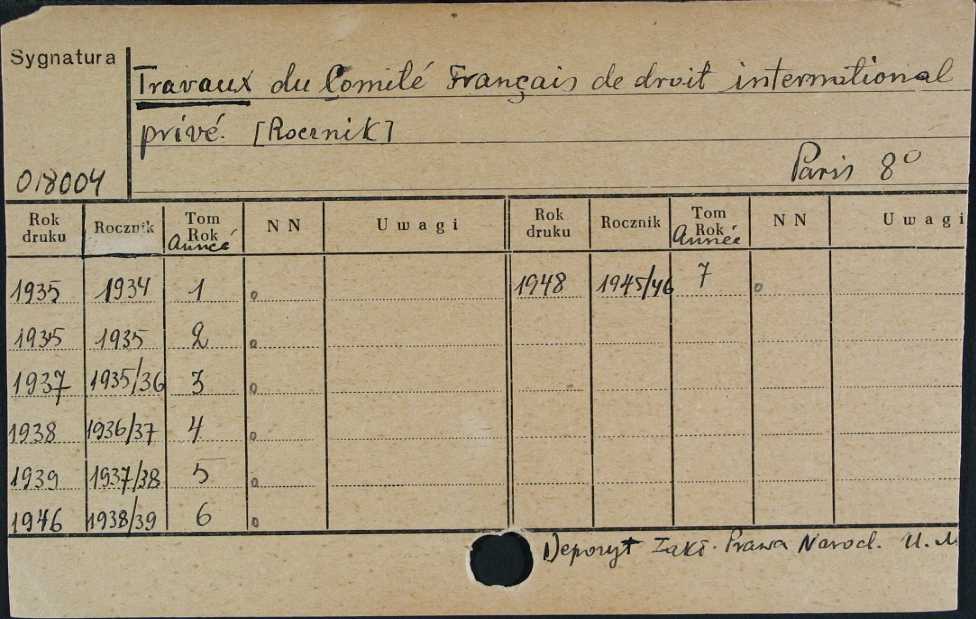 Sygnatura
Travaux du Comité Français de droit international
privé. [Rocznik]
Paris 8°
018004
Rok druku Rocznik Tom Rok Année N N Uwagi Rok druku Rocznik Tom Rok Année N N Uwagi
1935 1934 1 1948 1945/46 7
1935 1935 2
1937 1935/36 3
1938 1936/37 4
1939 1937/38 5
1946 1938/39 6
Depozyt Zakł. Prawa Narod. U. M